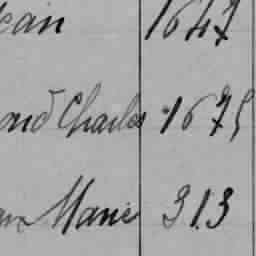 Jean 1647
ond Charles 1675
an Marie 313